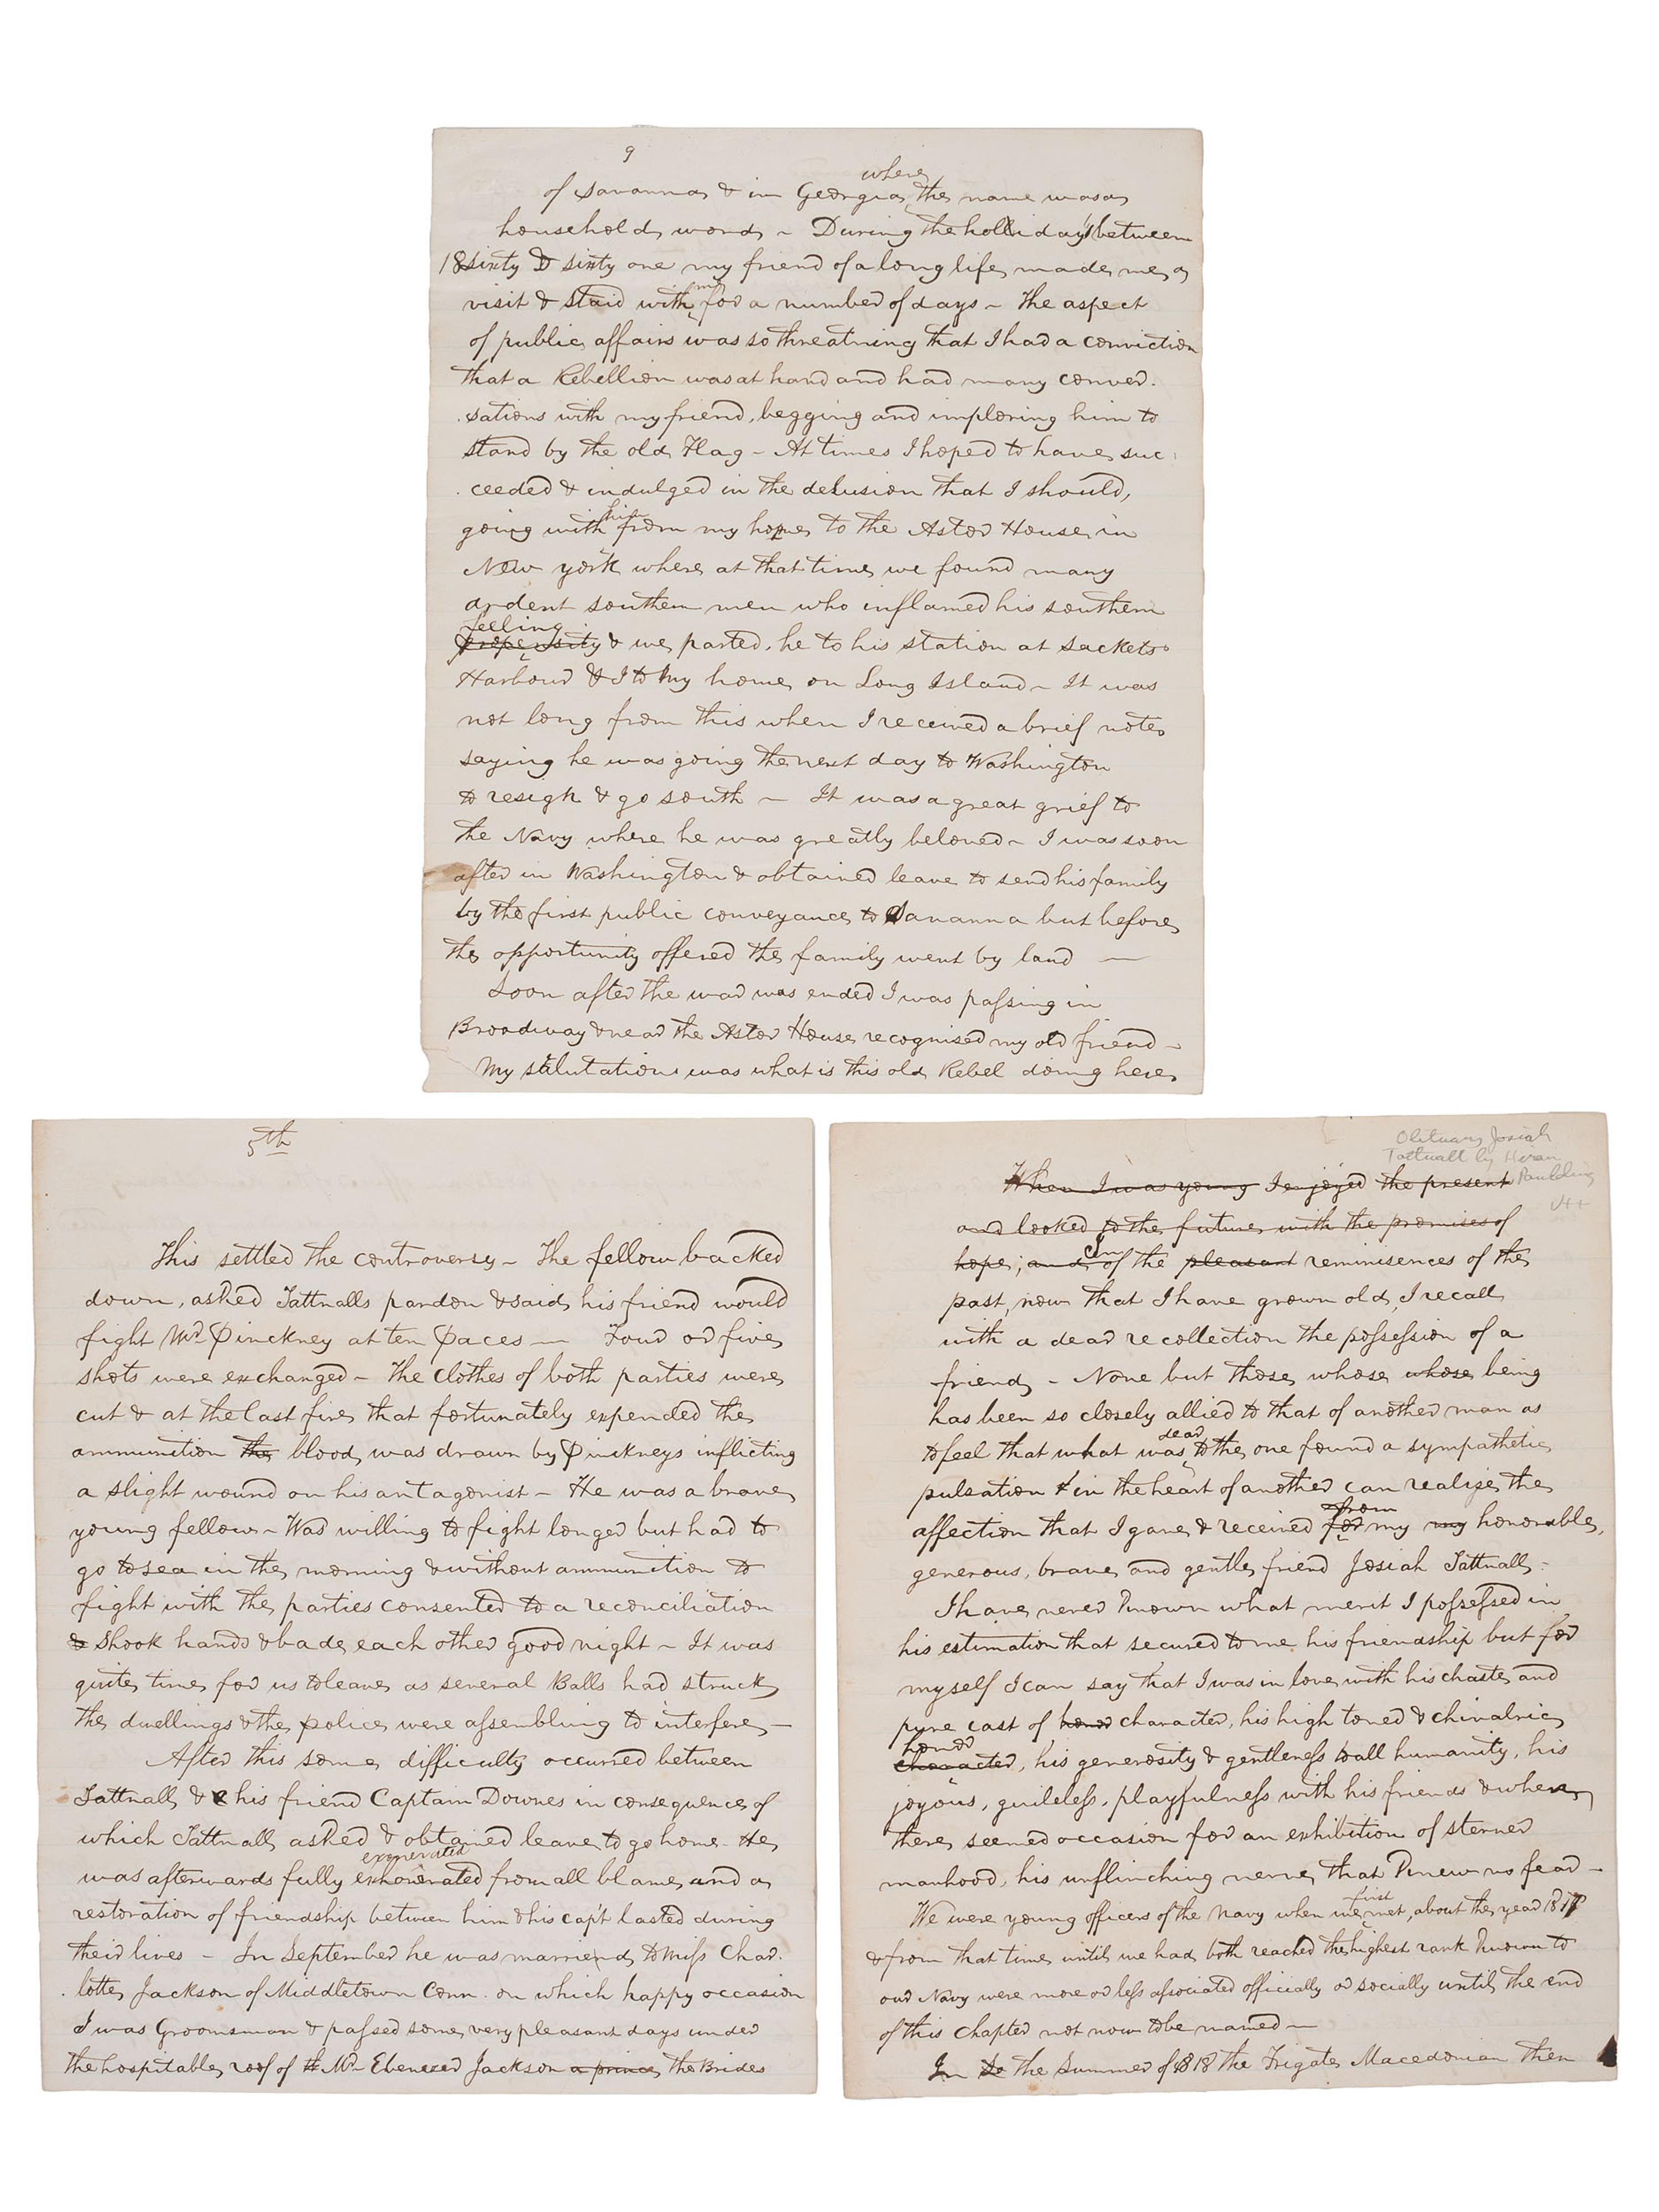 9
where
of Savanna & in Georgia the name was a
household word ~ During the holliday's between
18sixty & sixty one my friend of a long life made me a
visit & staid with me for a number of days ~ The aspect
of public affairs was so threatning that I had a conviction
that a Rebellion was at hand and had many conver.
.sations with my friend, begging and imploring him to
stand by the old Flag ~ At times I hoped to have suc
.ceeded & indulged in the delusion that I should,
going with him from my home to the Astor House in
New York where at that time we found many
ardent southern men who inflamed his southern
feeling
propensity & we parted, he to his station at Sackets
Harbour & I to My home on Long Island ~ It was
not long from this when I received a brief note
saying he was going the next day to Washington
to resign & go south ~ It was a great grief to
the Navy where he was greatly beloved ~ I was soon
after in Washington & obtained leave to send his family
by the first public conveyance to Savanna but before
the opportunity offered the family went by land —
Soon after the war was ended I was passing in
Broadway & near the Astor House recognised my old friend ~
My salutation was what is this old Rebel doing here
5th
This settled the controversy ~ The fellow backed
down, asked Tattnalls pardon & said his friend would
fight Mr Pinckney at ten paces — Four or five
shots were exchanged ~ The clothes of both parties were
cut & at the last fire that fortunately expended the
ammunition the blood was drawn by Pinckneys inflicting
a slight wound on his antagonist ~ He was a brave
young fellow ~ Was willing to fight longer but had to
go to sea in the morning & without ammunition to
fight with the parties consented to a reconciliation
& shook hands & bade each other good night ~ It was
quite time for us to leave as several Balls had struck
the dwellings & the police were assembling to interfere —
After this some difficulty occurred between
Tattnall & his friend Captain Downes in consequence of
which Tattnall asked & obtained leave to go home. He
exonerated
was afterwards fully exhonerated from all blame and a
restoration of friendship between him & his capt lasted during
their lives ~ In September he was married to Miss Char.
.lotte Jackson of Middletown Conn. on which happy occasion
I was Groomsman & passed some very pleasant days under
the hospitable roof of Mr Ebenezer Jackson a prince the Brides
Obituary Josiah
Tattnall by Hiram
Paulding
When I was young I enjoyed the present
and looked to the future with the promises of
hope; and of the pleasant reminisences of the
past, now that I have grown old, I recall
with a dear recollection the possession of a
friend ~ None but those whose whose being
has been so closely allied to that of another man as
to feel that what was dear to the one found a sympathetic
pulsation & in the heart of another can realize the
from
affection that I gave & received for my my honorable,
generous, brave and gentle friend Josiah Tattnall.
I have never known what merit I possessed in
his estimation that secured to me his friendship but for
myself I can say that I was in love with his chaste and
pure cast of honor character, his high toned & chivalric
honor
character, his generosity & gentleness to all humanity, his
joyous, guileless, playfulness with his friends & when
there seemed occasion for an exhibition of sterner
manhood, his unflinching nerve that knew no fear —
We were young officers of the Navy when we first met, about the year 1817
& from that time until we had both reached the highest rank known to
our Navy were more or less associated officially or socially until the end
of this chapter not now to be named ~
In the Summer of 1818 the Frigate Macedonian then